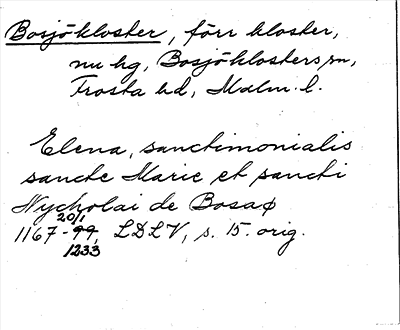 Bosjökloster, förr kloster,
nu hg, Bosjöklosters sn,
Frosta hd, Malm. l.
Elena, sanctimonialis
sancte Marie et sancti
Nycholai de Bosaø
20/1
1167-99, LDLV, s. 15. orig.
1233